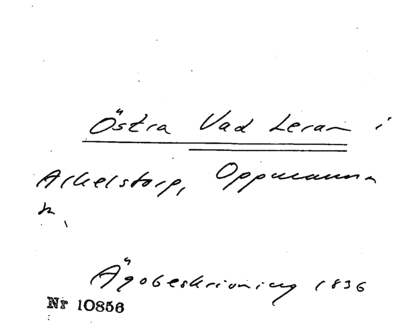 Östra Vad Leran i
Arkelstorp, Oppmanna
sn.
Ägobeskrivning 1836
Nr 10856